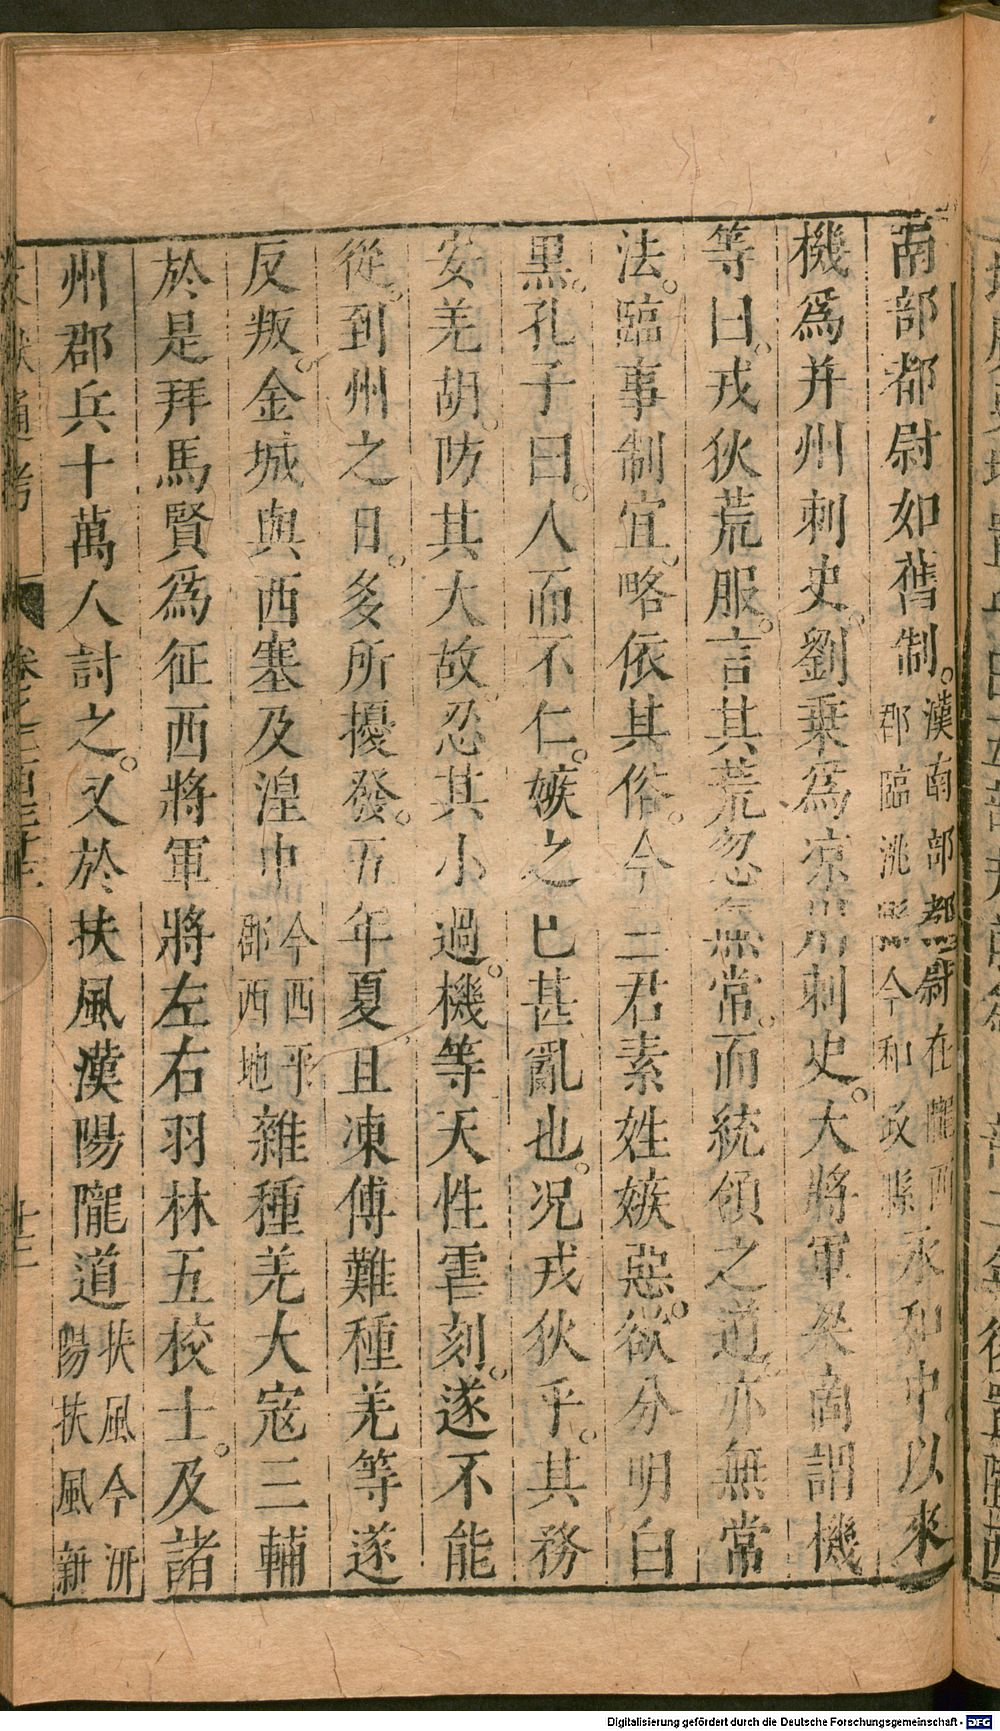 南部都尉如舊制。漢南部都尉在隴西郡臨洮今和政縣永和中。以來
機爲并州刺史。劉秉爲涼州刺史。大將軍梁商謂機
等曰。戎狄荒服。言其荒忽無常。而統領之道。亦無常
法。臨事制宜。略依其俗。今二君素姓嫉惡。欲分明白
黒。孔子曰。人而不仁。嫉之已甚亂也。况戎狄乎。其務
安羌胡。防其大故忍其小過。機等天性虐刻。遂不能
從。到州之日。多所擾發。五年夏。且凍傅難種羌等遂
反叛。金城與西塞及湟中今西平郡西地雜種羌大寇三輔
於是拜馬賢爲征西將軍將左右羽林五校士。及諸
州郡兵十萬人討之。又於扶風漢陽隴道扶風今汧陽扶風新
文獻通考 卷之三百三十三
Digitalisierung gefördert durch die Deutsche Forschungsgemeinschaft - DFG